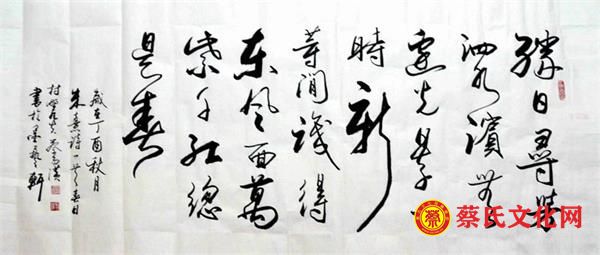 勝日尋芳
泗水濱無
邊光景一
時新
等闲識得
东风面萬
紫千红總
是春
歲在丁酉秋月
朱熹詩一首春日
村 蔡
書於墨 軒
蔡氏文化网